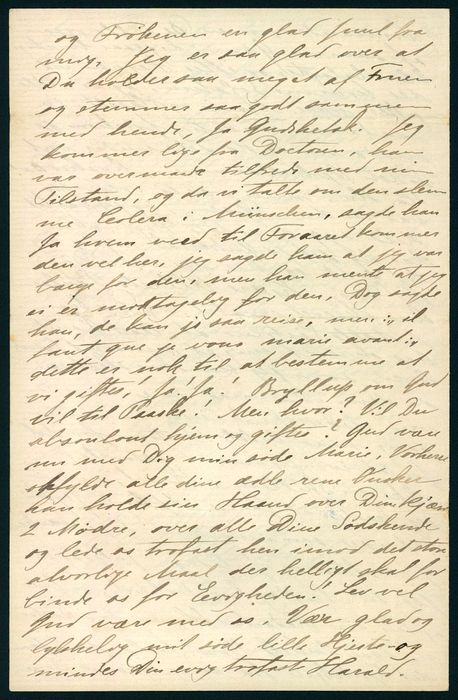 og Frøkenen en glad Juul fra
mig. Jeg er saa glad over at
Du holder saa meget af Fruen
og stemmer saa godt sammen
med hende, ja Gudskelov. Jeg
kommer lige fra Doctoren, han
var overmaade tilfreds med min
Tilstand, og da vi talte om den slem
me Colera i München, sagde han
Ja hvem veed til Foraaret kommer
den vel her, jeg sagde ham at jeg var
bange for den, men han mente at jeg
ei er modtagelig for den. Dog sagde
han, de kan jo saa reise, men :,: il
faut que je vous marie avant :,:
dette er nok til at bestemme at
vi giftes! Ja! Ja! Bryllup om Gud
vil til Paaske! Men hvor? Vil Du
absolout hjem og giftes? Gud være
nu med Dig min søde Marie, Vorherre
opfylde alle dine ædle rene Ønsker
han holde sin Haand over Din kjære
2 Mødre, over alle Dine Sødskende
og lede os trofast hen imod det store
alvorlige Maal der helligt skal for
binde os for Evigheden! Lev vel
Gud være med os. Vær glad og
lykkelig mit søde lille Hjerte og
mindes Din evig trofaste Harald.